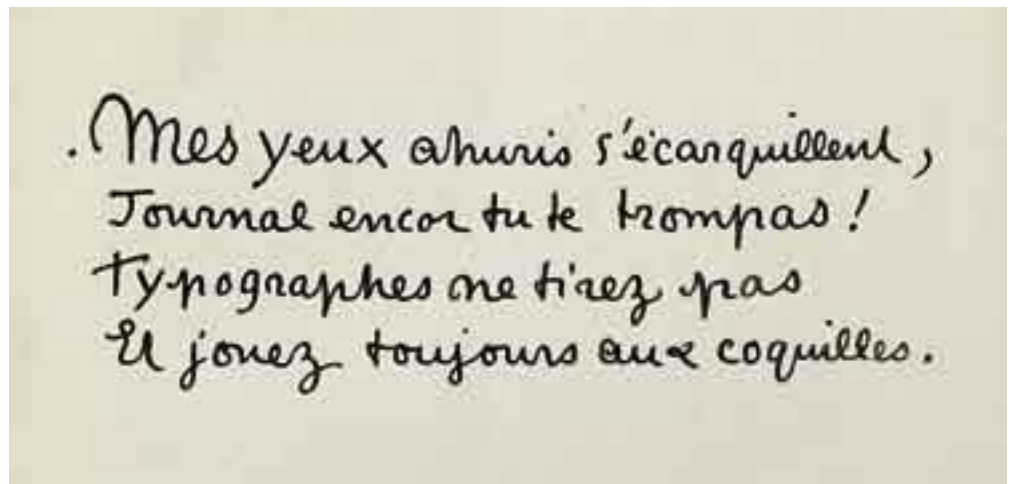 Mes yeux ahuris s'écarquillent,
Journal encor tu te trompas !
Typographes ne tirez pas
Et jouez toujours aux coquilles.